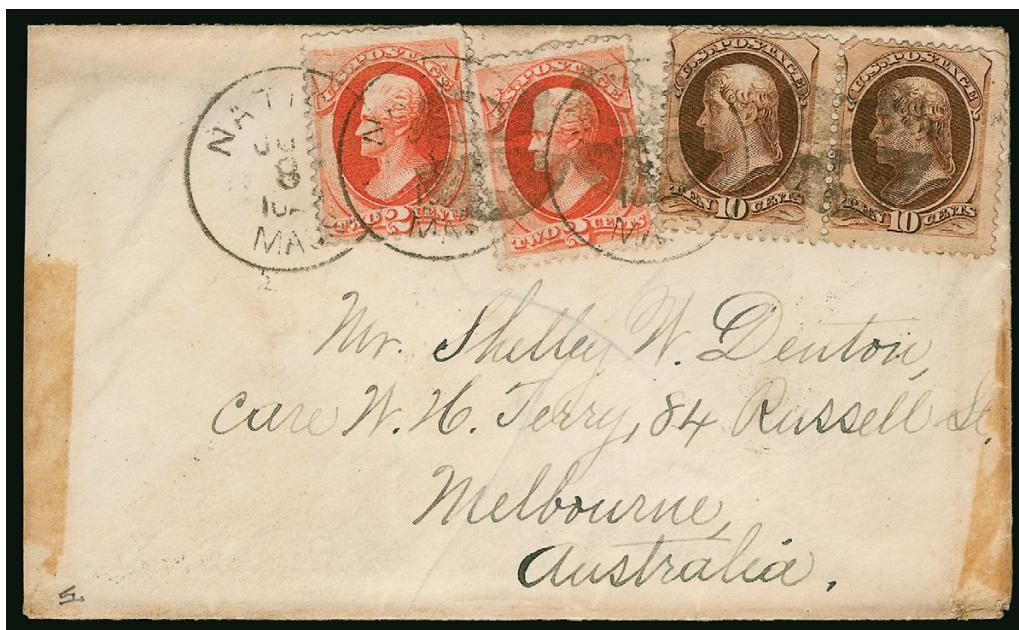 U.S. POSTAGE
TWO 2 CENTS
U.S. POSTAGE
TWO 2 CENTS
U.S. POSTAGE
TEN 10 CENTS
U.S. POSTAGE
TEN 10 CENTS
NATI
8
MASS
MASS
Mr. Shelley W. Denton,
care W. H. Terry, 84 Russell St,
Melbourne,
Australia.